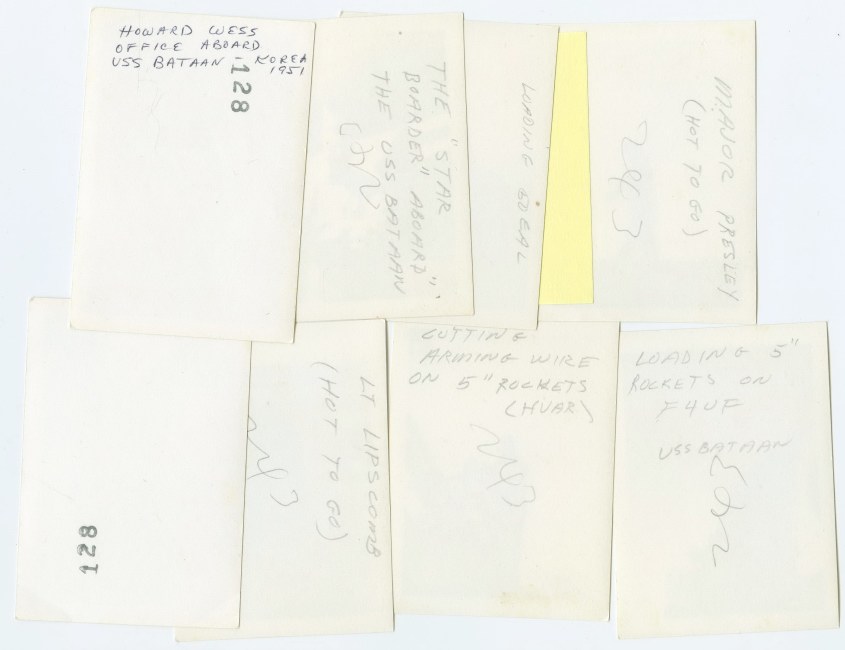 HOWARD WESS
OFFICE ABOARD
USS BATAAN - KOREA
1951
128
THE "STAR
BOARDER" ABOARD
THE USS BATAAN"
LOADING
MAJOR PRESLEY
(HOT TO GO)
243
128
LT LIPSCOMB
(HOT TO GO)
243
CUTTING
ARMING WIRE
ON 5" ROCKETS
(HVAR)
243
LOADING 5"
ROCKETS ON
F4UF
USS BATAAN